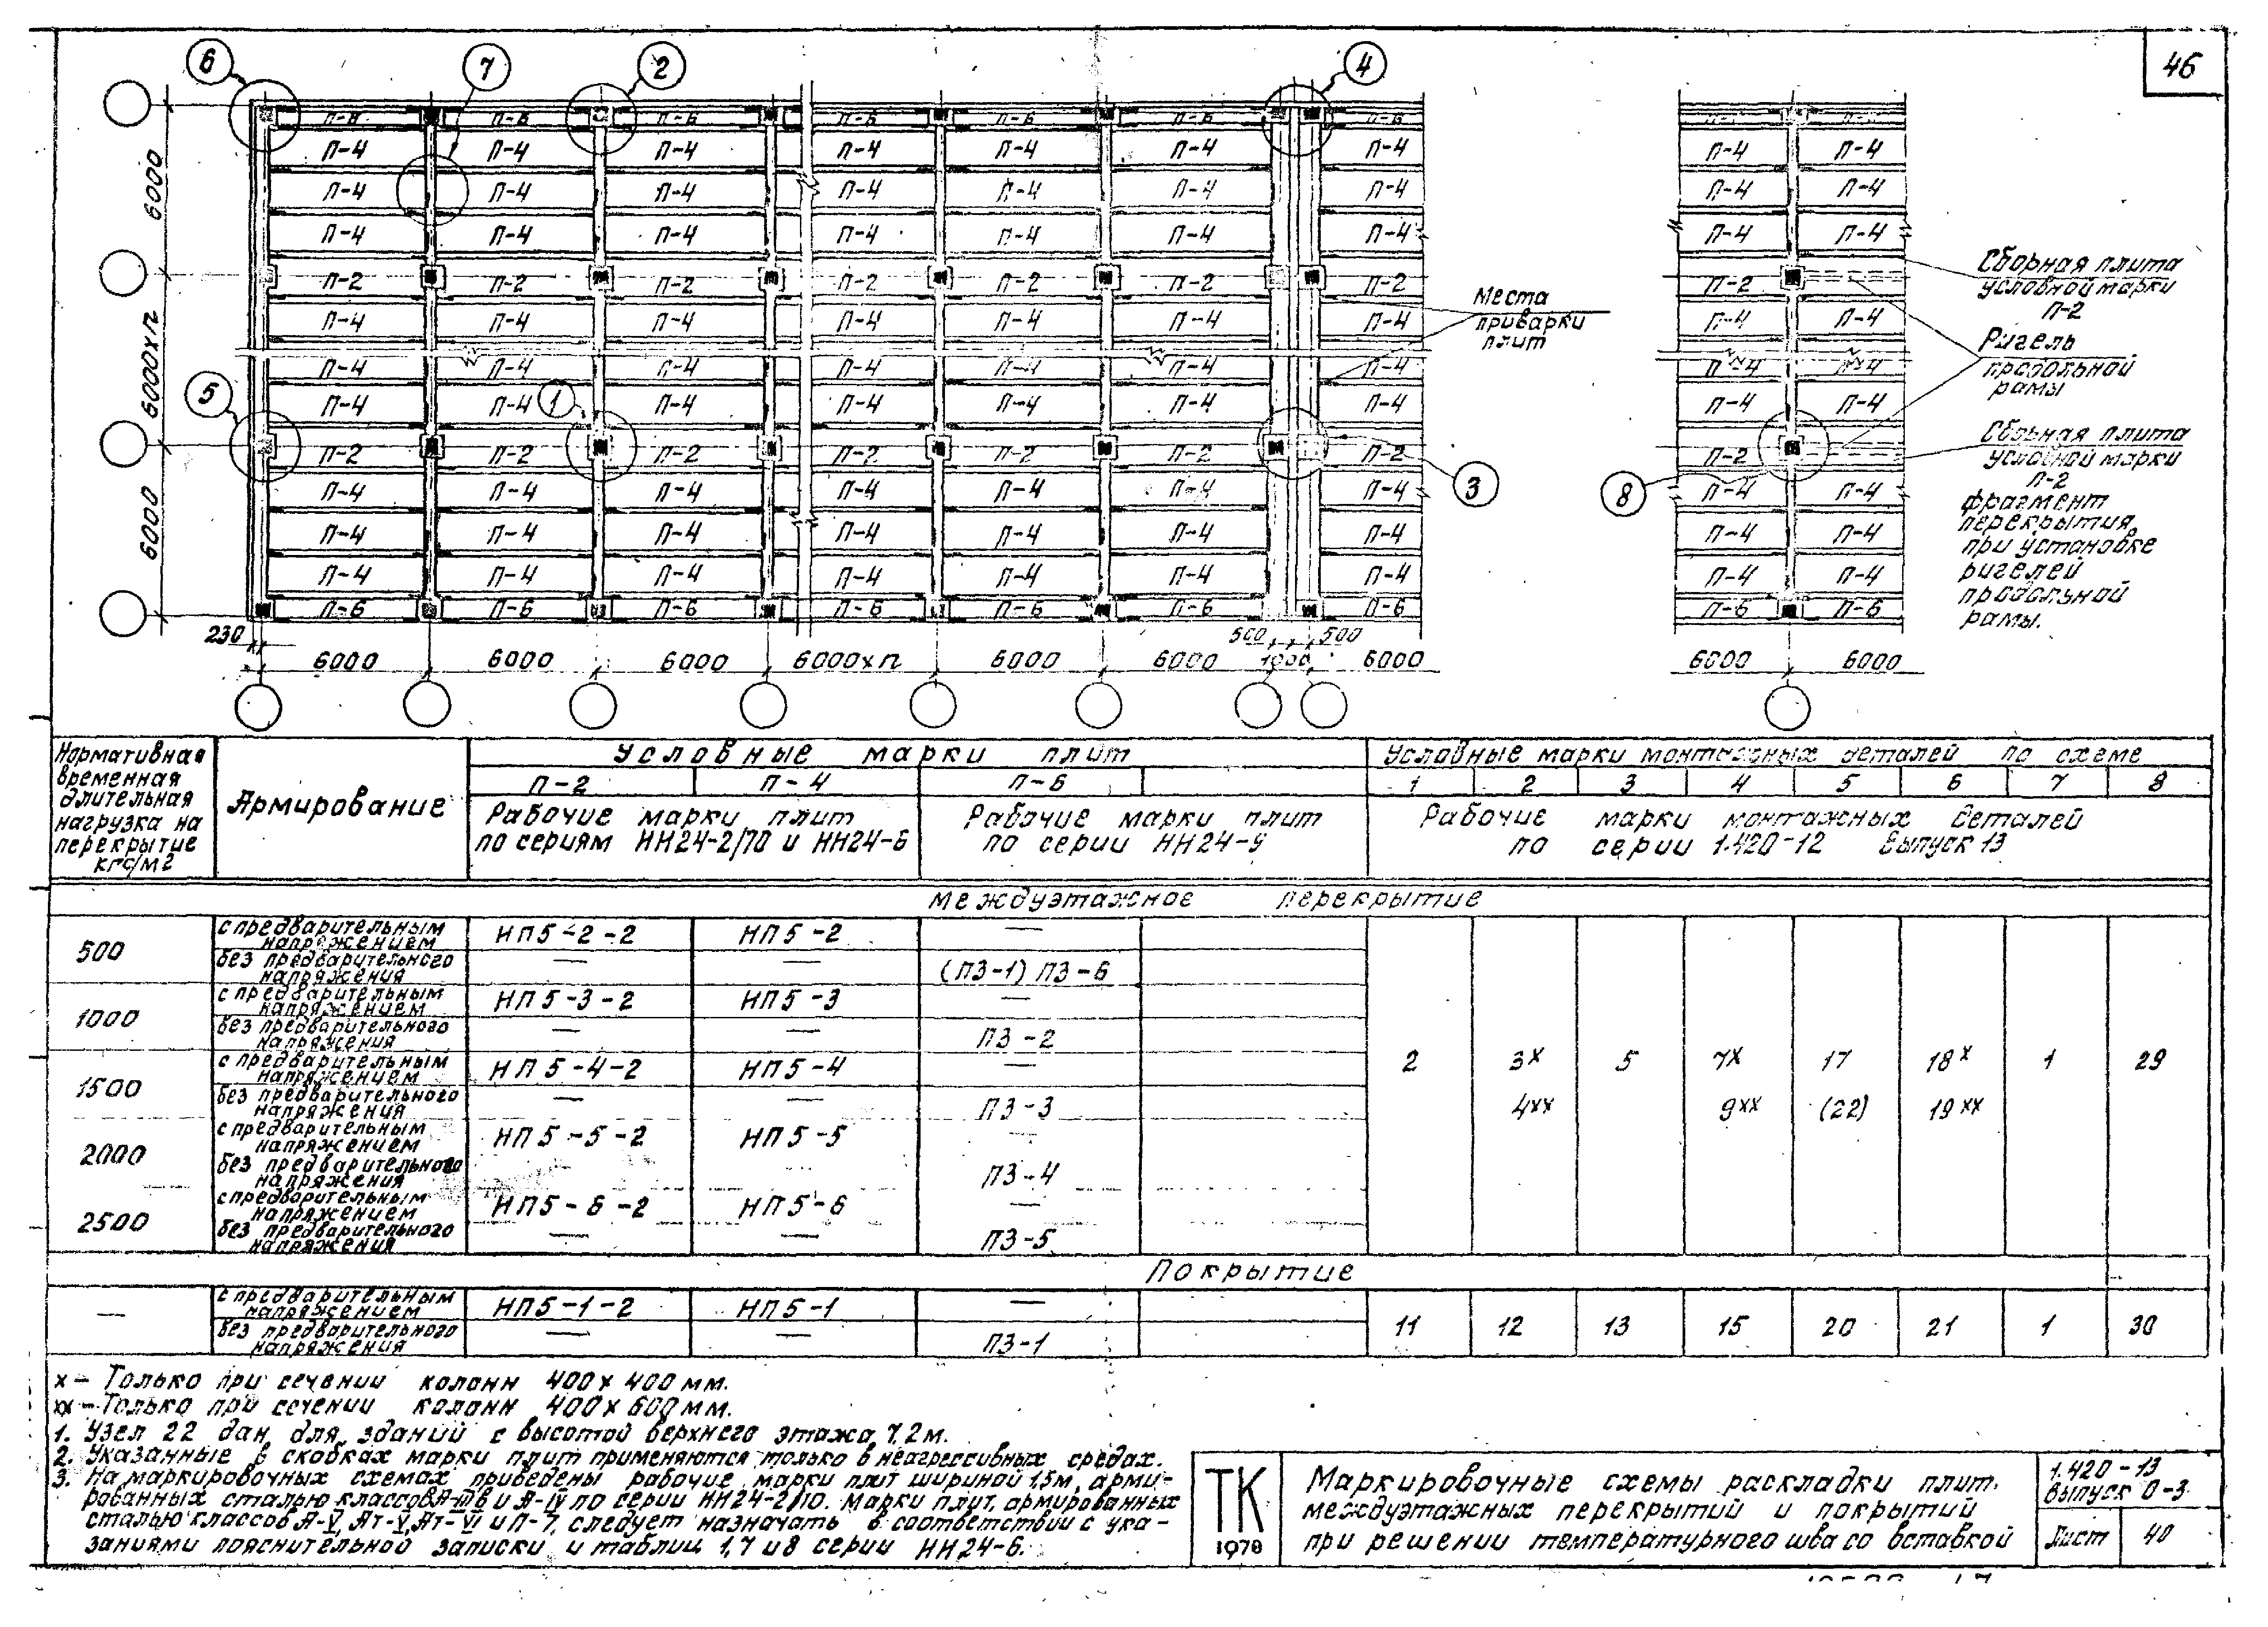 46
6 7 2 4
П-6 П-6 П-6 П-6 П-6 П-6 П-6
П-4 П-4 П-4 П-4 П-4 П-4 П-4 П-4 П-4
П-4 П-4 П-4 П-4 П-4 П-4 П-4 П-4 П-4
П-4 П-4 П-4 П-4 П-4 П-4 П-4 П-4 П-4
П-2 П-2 П-2 П-2 П-2 П-2 П-2 П-2
П-4 П-4 П-4 П-4 П-4 П-4 П-4 П-4 П-4
П-4 П-4 П-4 П-4 П-4 П-4 П-4 П-4 П-4
П-4 П-4 П-4 П-4 П-4 П-4 П-4 П-4 П-4
П-2 П-2 П-2 П-2 П-2 П-2 П-2 П-2
П-4 П-4 П-4 П-4 П-4 П-4 П-4 П-4 П-4
П-4 П-4 П-4 П-4 П-4 П-4 П-4 П-4 П-4
П-4 П-4 П-4 П-4 П-4 П-4 П-4 П-4 П-4
П-6 П-6 П-6 П-6 П-6 П-6 П-6 П-6 П-6
5 1 3 8
6000
6000хп
6000
Места
приварки
плит
Сборная плита
условной марки
П-2
Ригель
продольной
рамы
Сборная плита
условной марки
П-2
фрагмент
перекрытия
при установке
ригелей
продольной
рамы.
230 500 500
6000 6000 6000 6000хп 6000 6000 1000 6000 6000 6000
Нормативная
временная
длительная
нагрузка на
перекрытие
кгс/м2
Армирование
Условные марки плит
П-2 П-4 П-6
Рабочие марки плит
по сериям ИИ24-2/70 и ИИ24-6
Рабочие марки плит
по серии ИИ24-9
Условные марки монтажных деталей по схеме
1 2 3 4 5 6 7 8
Рабочие марки монтажных деталей
по серии 1.420-12 Выпуск 13
междуэтажное перекрытие
500 с предварительным напряжением НП5-2-2 НП5-2 —
без предварительного напряжения — — (П3-1) П3-6
1000 с предварительным напряжением НП5-3-2 НП5-3 —
без предварительного напряжения — — П3-2
1500 с предварительным напряжением НП5-4-2 НП5-4 —
без предварительного напряжения — — П3-3
2000 с предварительным напряжением НП5-5-2 НП5-5 —
без предварительного напряжения П3-4
2500 с предварительным напряжением НП5-6-2 НП5-6 —
без предварительного напряжения — — П3-5
2 3х 5 7х 17 18х 1 29
4хх 9хх (22) 19хх
Покрытие
— с предварительным напряжением НП5-1-2 НП5-1 —
без предварительного напряжения — — П3-1
11 12 13 15 20 21 1 30
х – Только при сечении колонн 400х400мм.
хх – Только при сечении колонн 400х600мм.
1. Узел 22 дан для зданий с высотой верхнего этажа 7,2м.
2. Указанные в скобках марки плит применяются только в неагрессивных средах.
3. На маркировочных схемах приведены рабочие марки плит шириной 1,5м, арми-
рованных сталью классов А-IIIв и А-IV по серии ИИ24-2/70. Марки плит, армированных
сталью классов А-V, Ат-V, Ат-VI и П-7, следует назначать в соответствии с ука-
заниями пояснительной записки и таблиц 1,7 и 8 серии ИИ24-6.
ТК
1978
Маркировочные схемы раскладки плит
междуэтажных перекрытий и покрытий
при решении температурного шва со вставкой
1.420-13
Выпуск 0-3
Лист 40